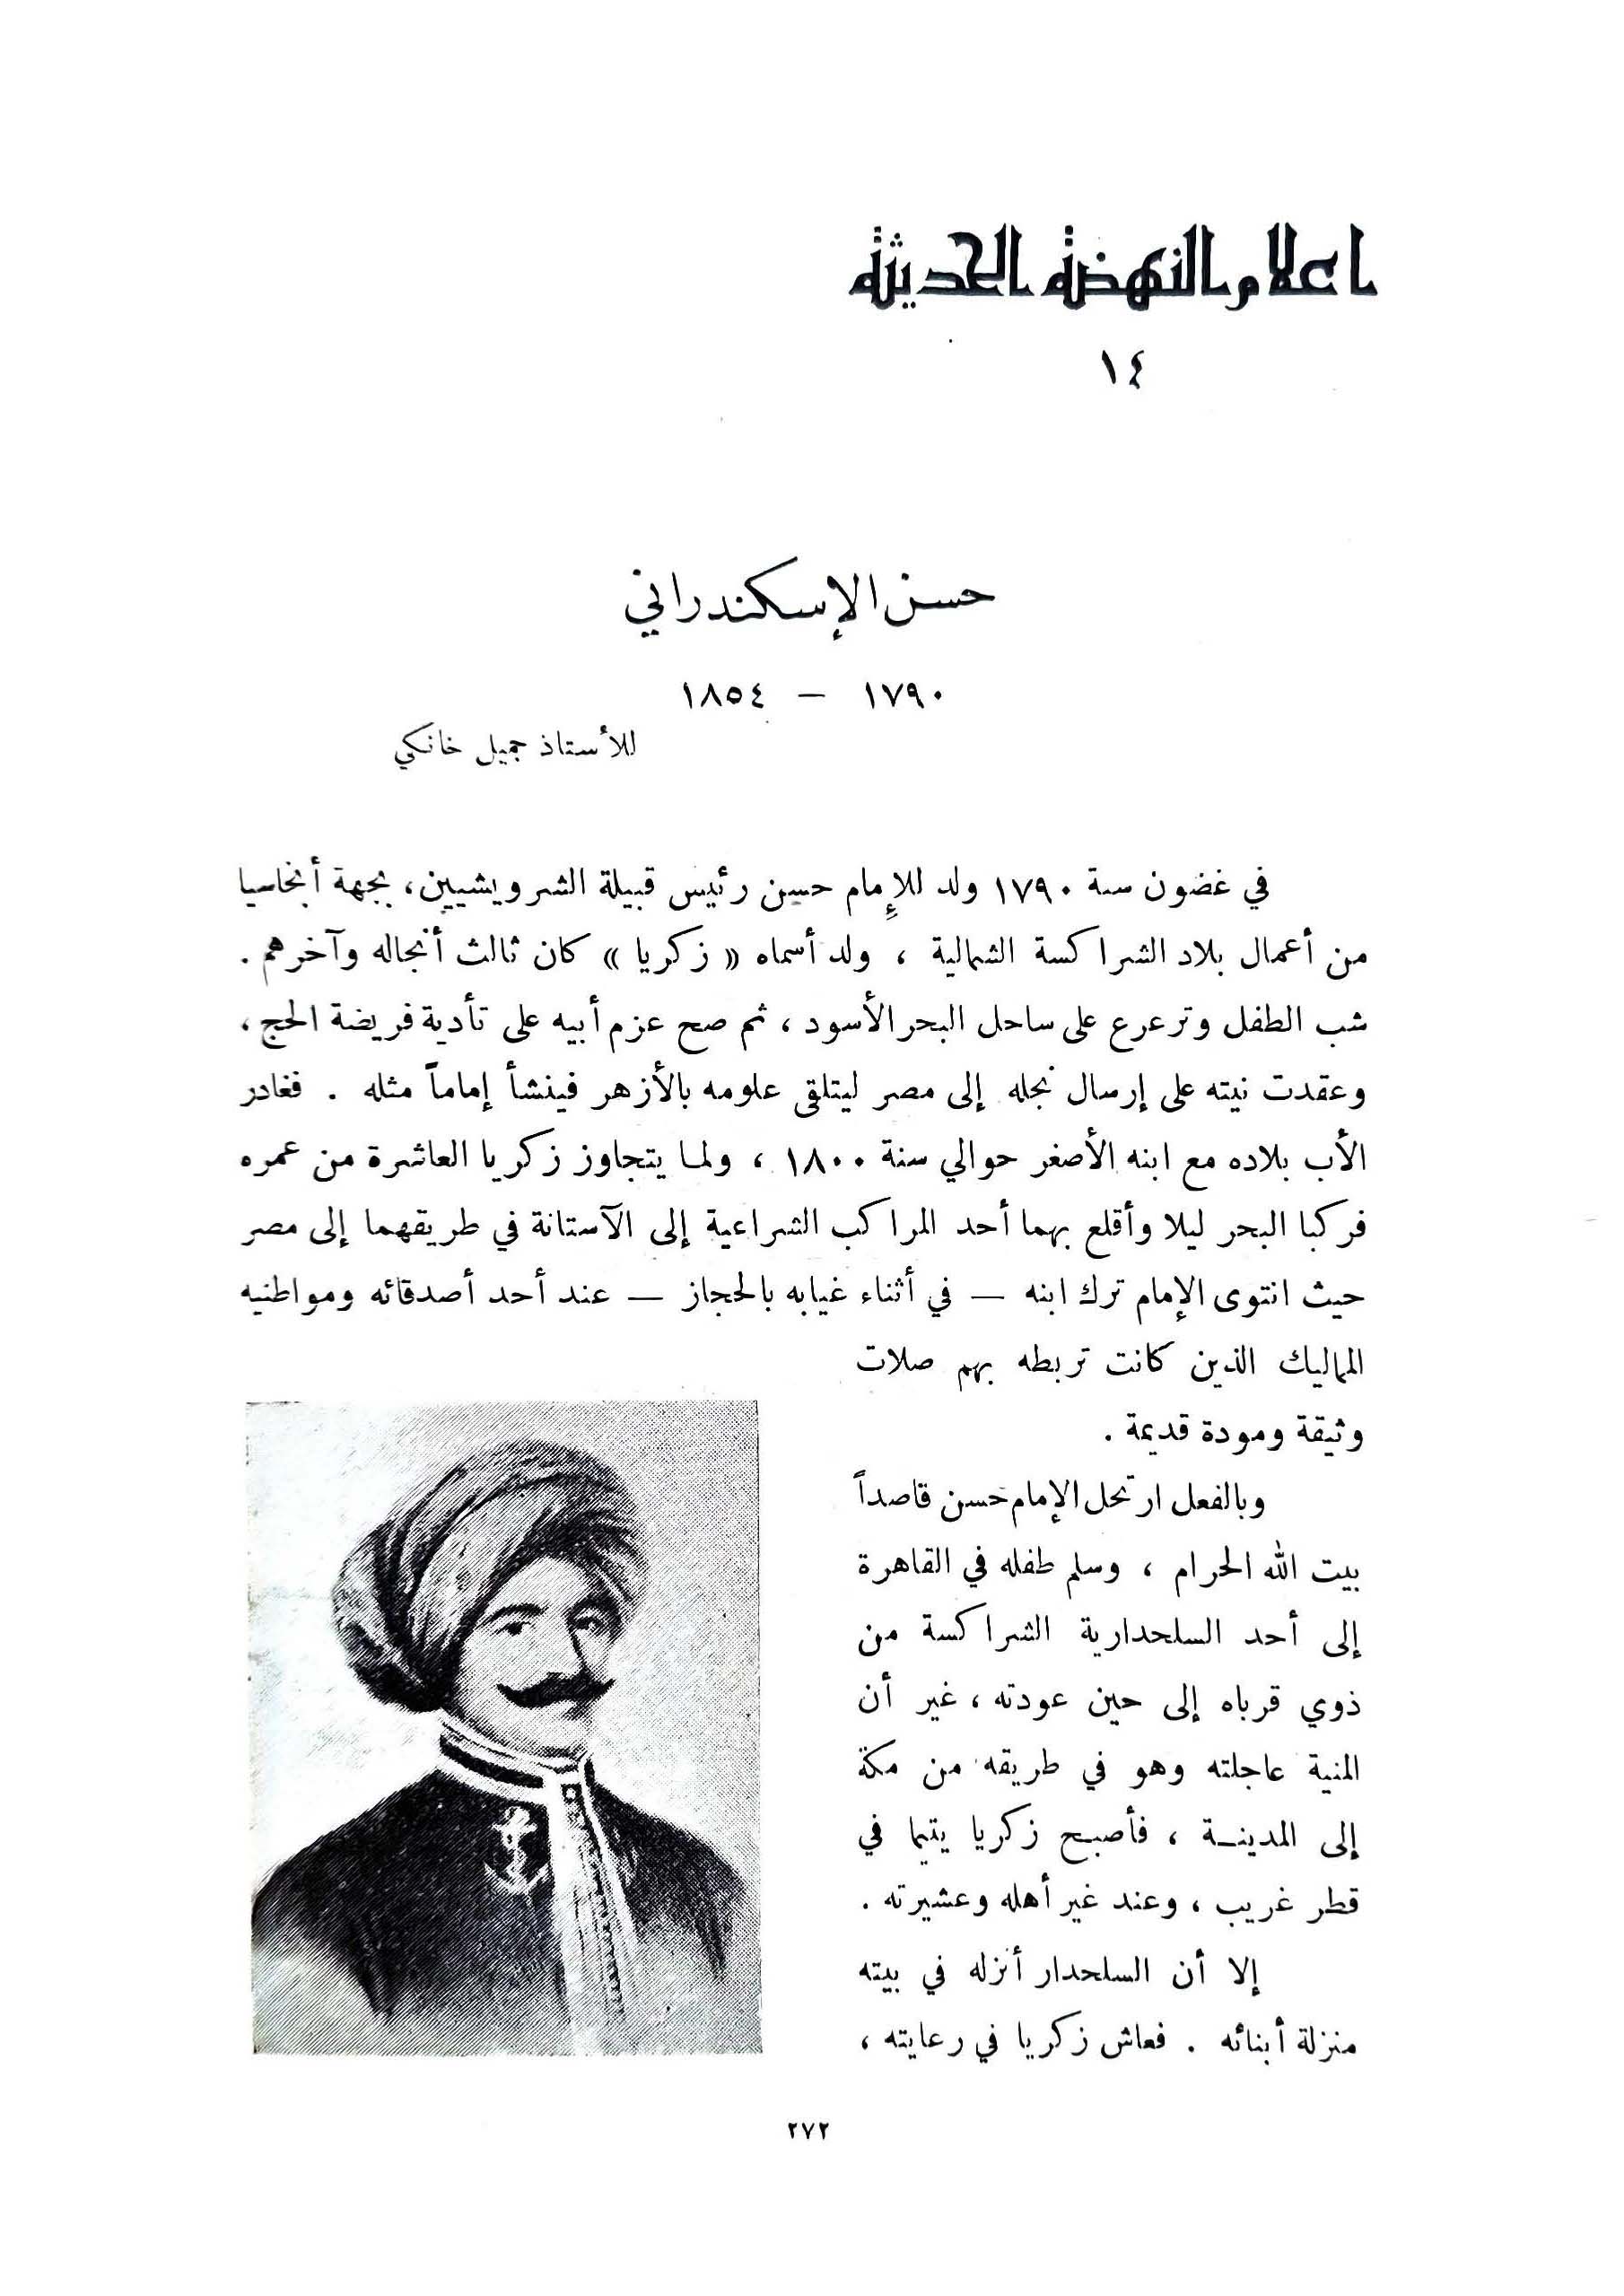 اعلام النهضة الحديثة
١٤
حسن الإسكندراني
١٧٩٠ — ١٨٥٤
للأستاذ جميل خانكي
في غضون سنة ١٧٩٠ ولد للإمام حسن رئيس قبيلة الشرويشيين، بجهة أنخاسيا
من أعمال بلاد الشراكسة الشمالية ، ولد أسماه « زكريا » كان ثالث أنجاله وآخرهم .
شب الطفل وترعرع على ساحل البحر الأسود ، ثم صح عزم أبيه على تأدية فريضة الحج ،
وعقدت نيته على إرسال نجله إلى مصر ليتلقى علومه بالأزهر فينشأ إماماً مثله . فغادر
الأب بلاده مع ابنه الأصغر حوالي سنة ١٨٠٠ ، ولما يتجاوز زكريا العاشرة من عمره
فركبا البحر ليلا وأقلع بهما أحد المراكب الشراعية إلى الآستانة في طريقهما إلى مصر
حيث انتوى الإمام ترك ابنه — في أثناء غيابه بالحجاز — عند أحد أصدقائه ومواطنيه
المماليك الذين كانت تربطه بهم صلات
وثيقة ومودة قديمة .
وبالفعل ارتحل الإمام حسن قاصداً
بيت الله الحرام ، وسلم طفله في القاهرة
إلى أحد السلحدارية الشراكسة من
ذوي قرباه إلى حين عودته ، غير أن
المنية عاجلته وهو في طريقه من مكة
إلى المدينة ، فأصبح زكريا يتيما في
قطر غريب ، وعند غير أهله وعشيرته .
إلا أن السلحدار أنزله في بيته
منزلة أبنائه . فعاش زكريا في رعايته ،
٢٧٢